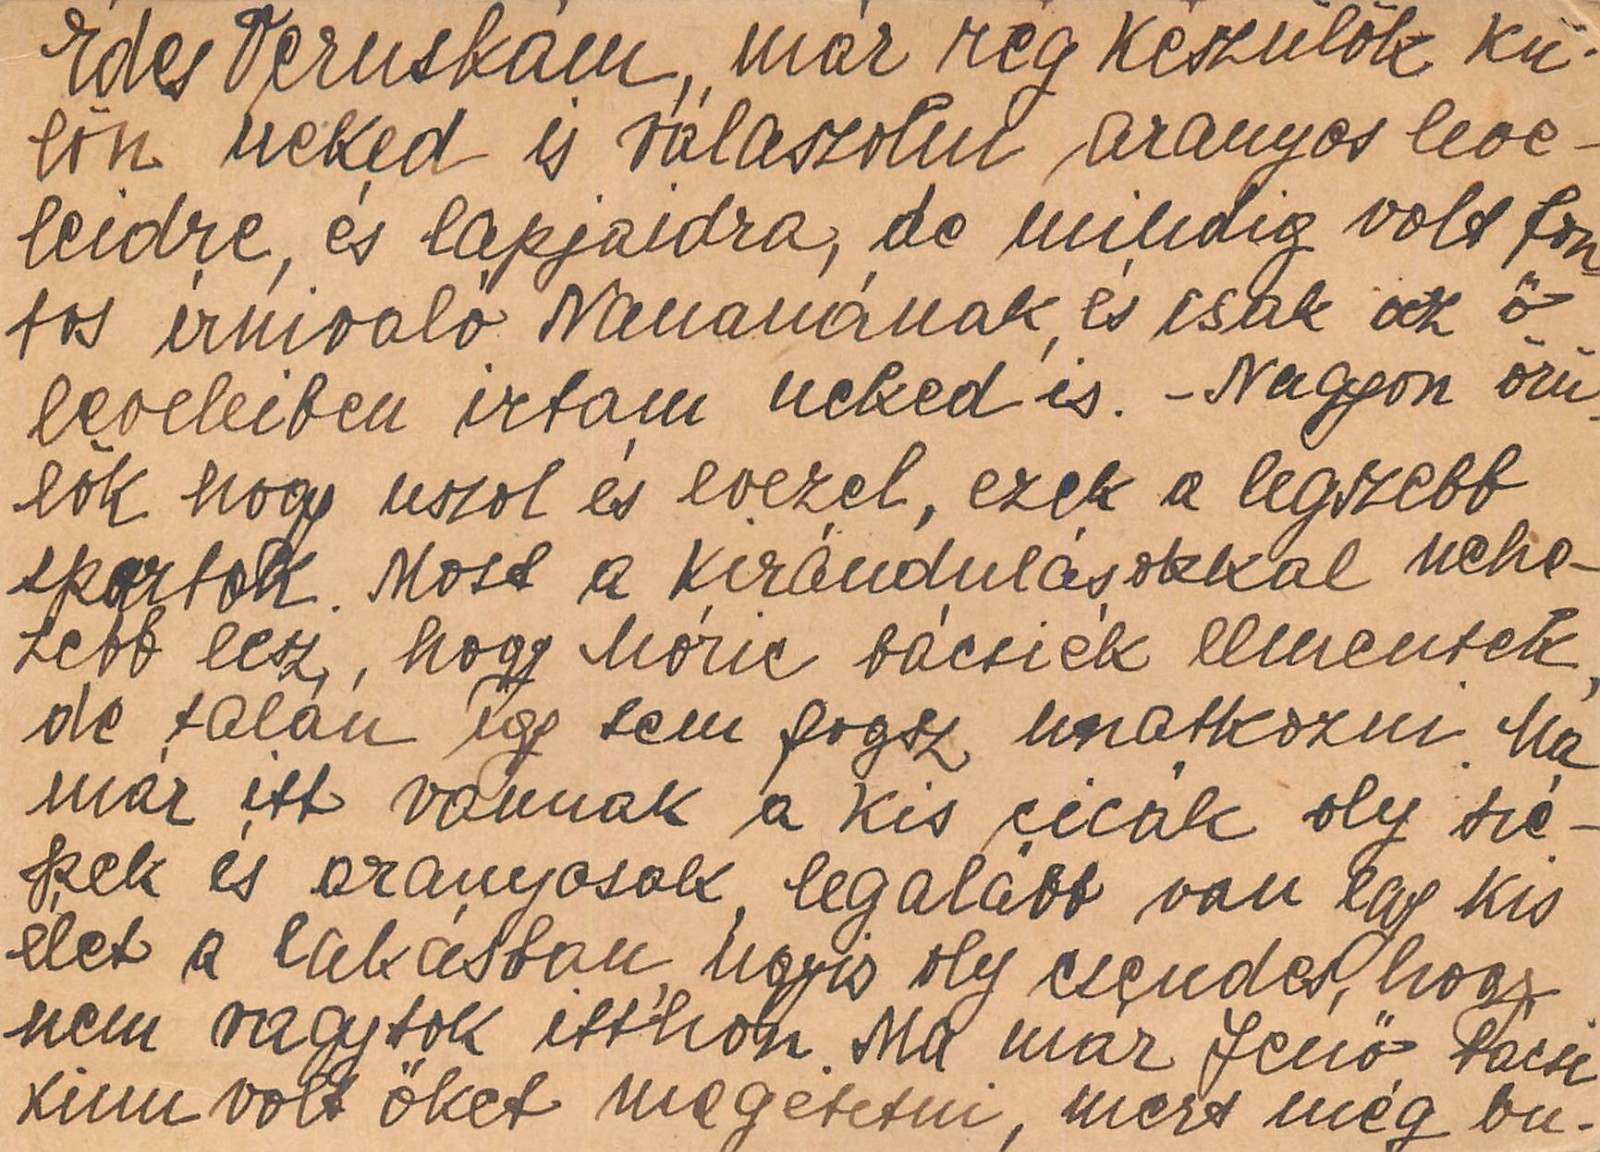 Édes Veruskám, már rég készülök kü-
lön neked is válaszolni aranyos leve-
leidre, és lapjaidra, de mindig volt fon
tos írnivaló Nananának, és csak az ő
leveleiben irtam neked is. - Nagyon örü-
lök hogy uszol és evezel, ezek a legszebb
sportok. Most a kirándulásokkal nehe-
zebb lesz, hogy Móric bácsiék elmentek,
de talán így sem fogsz unatkozni. Ma
már itt vannak a kis cicák oly szé-
pek és aranyosak, legalább van egy kis
élet a lakásban, úgyis oly csendes, hogy
nem vagytok itthon. Ma már Jenő bácsi
kinn volt őket megetetni, mert még bu-